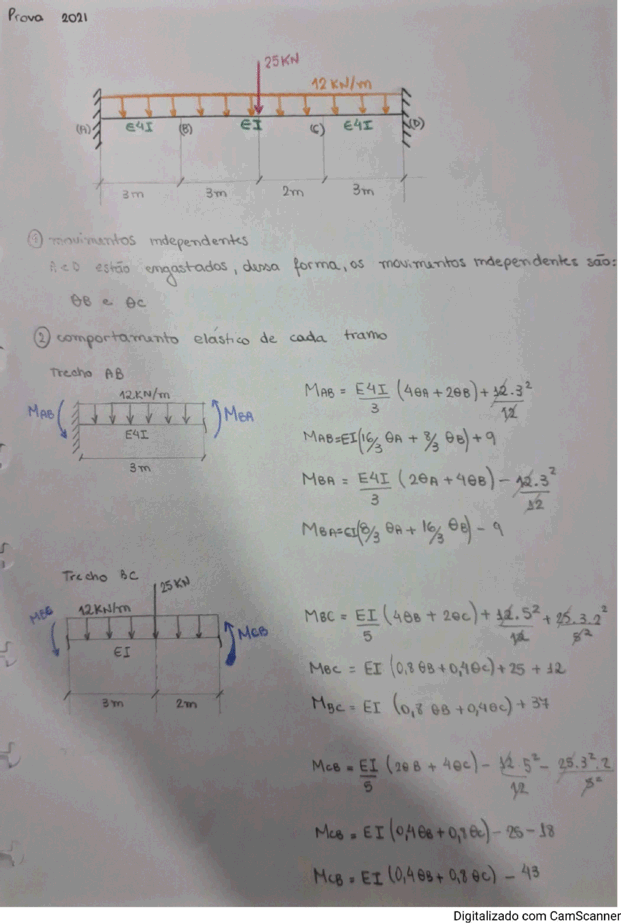 Prova 2021
25KN
12KN/m
(A) E4I (B) EI (C) E4I (D)
3m 3m 2m 3m
① movimentos independentes
A e D estão engastados, dessa forma, os movimentos independentes são:
θB e θC
② comportamento elástico de cada tramo
Trecho AB
12KN/m
MAB MBA
E4I
3m
MAB = E4I/3 (4θA + 2θB) + 12.3²/12
MAB=EI(16/3 θA + 8/3 θB) + 9
MBA = E4I/3 (2θA + 4θB) - 12.3²/12
MBA=EI(8/3 θA + 16/3 θB) - 9
Trecho BC
25KN
12KN/m
MBC MCB
EI
3m 2m
MBC = EI/5 (4θB + 2θC) + 12.5²/12 + 25.3.2²/5²
MBC = EI (0,8 θB + 0,4θC) + 25 + 12
MBC = EI (0,8 θB + 0,4θC) + 37
MCB = EI/5 (2θB + 4θC) - 12 5²/12 - 25.3².2/5²
MCB = EI (0,4θB + 0,8θC) - 25 - 18
MCB = EI (0,4θB + 0,8θC) - 43
Digitalizado com CamScanner